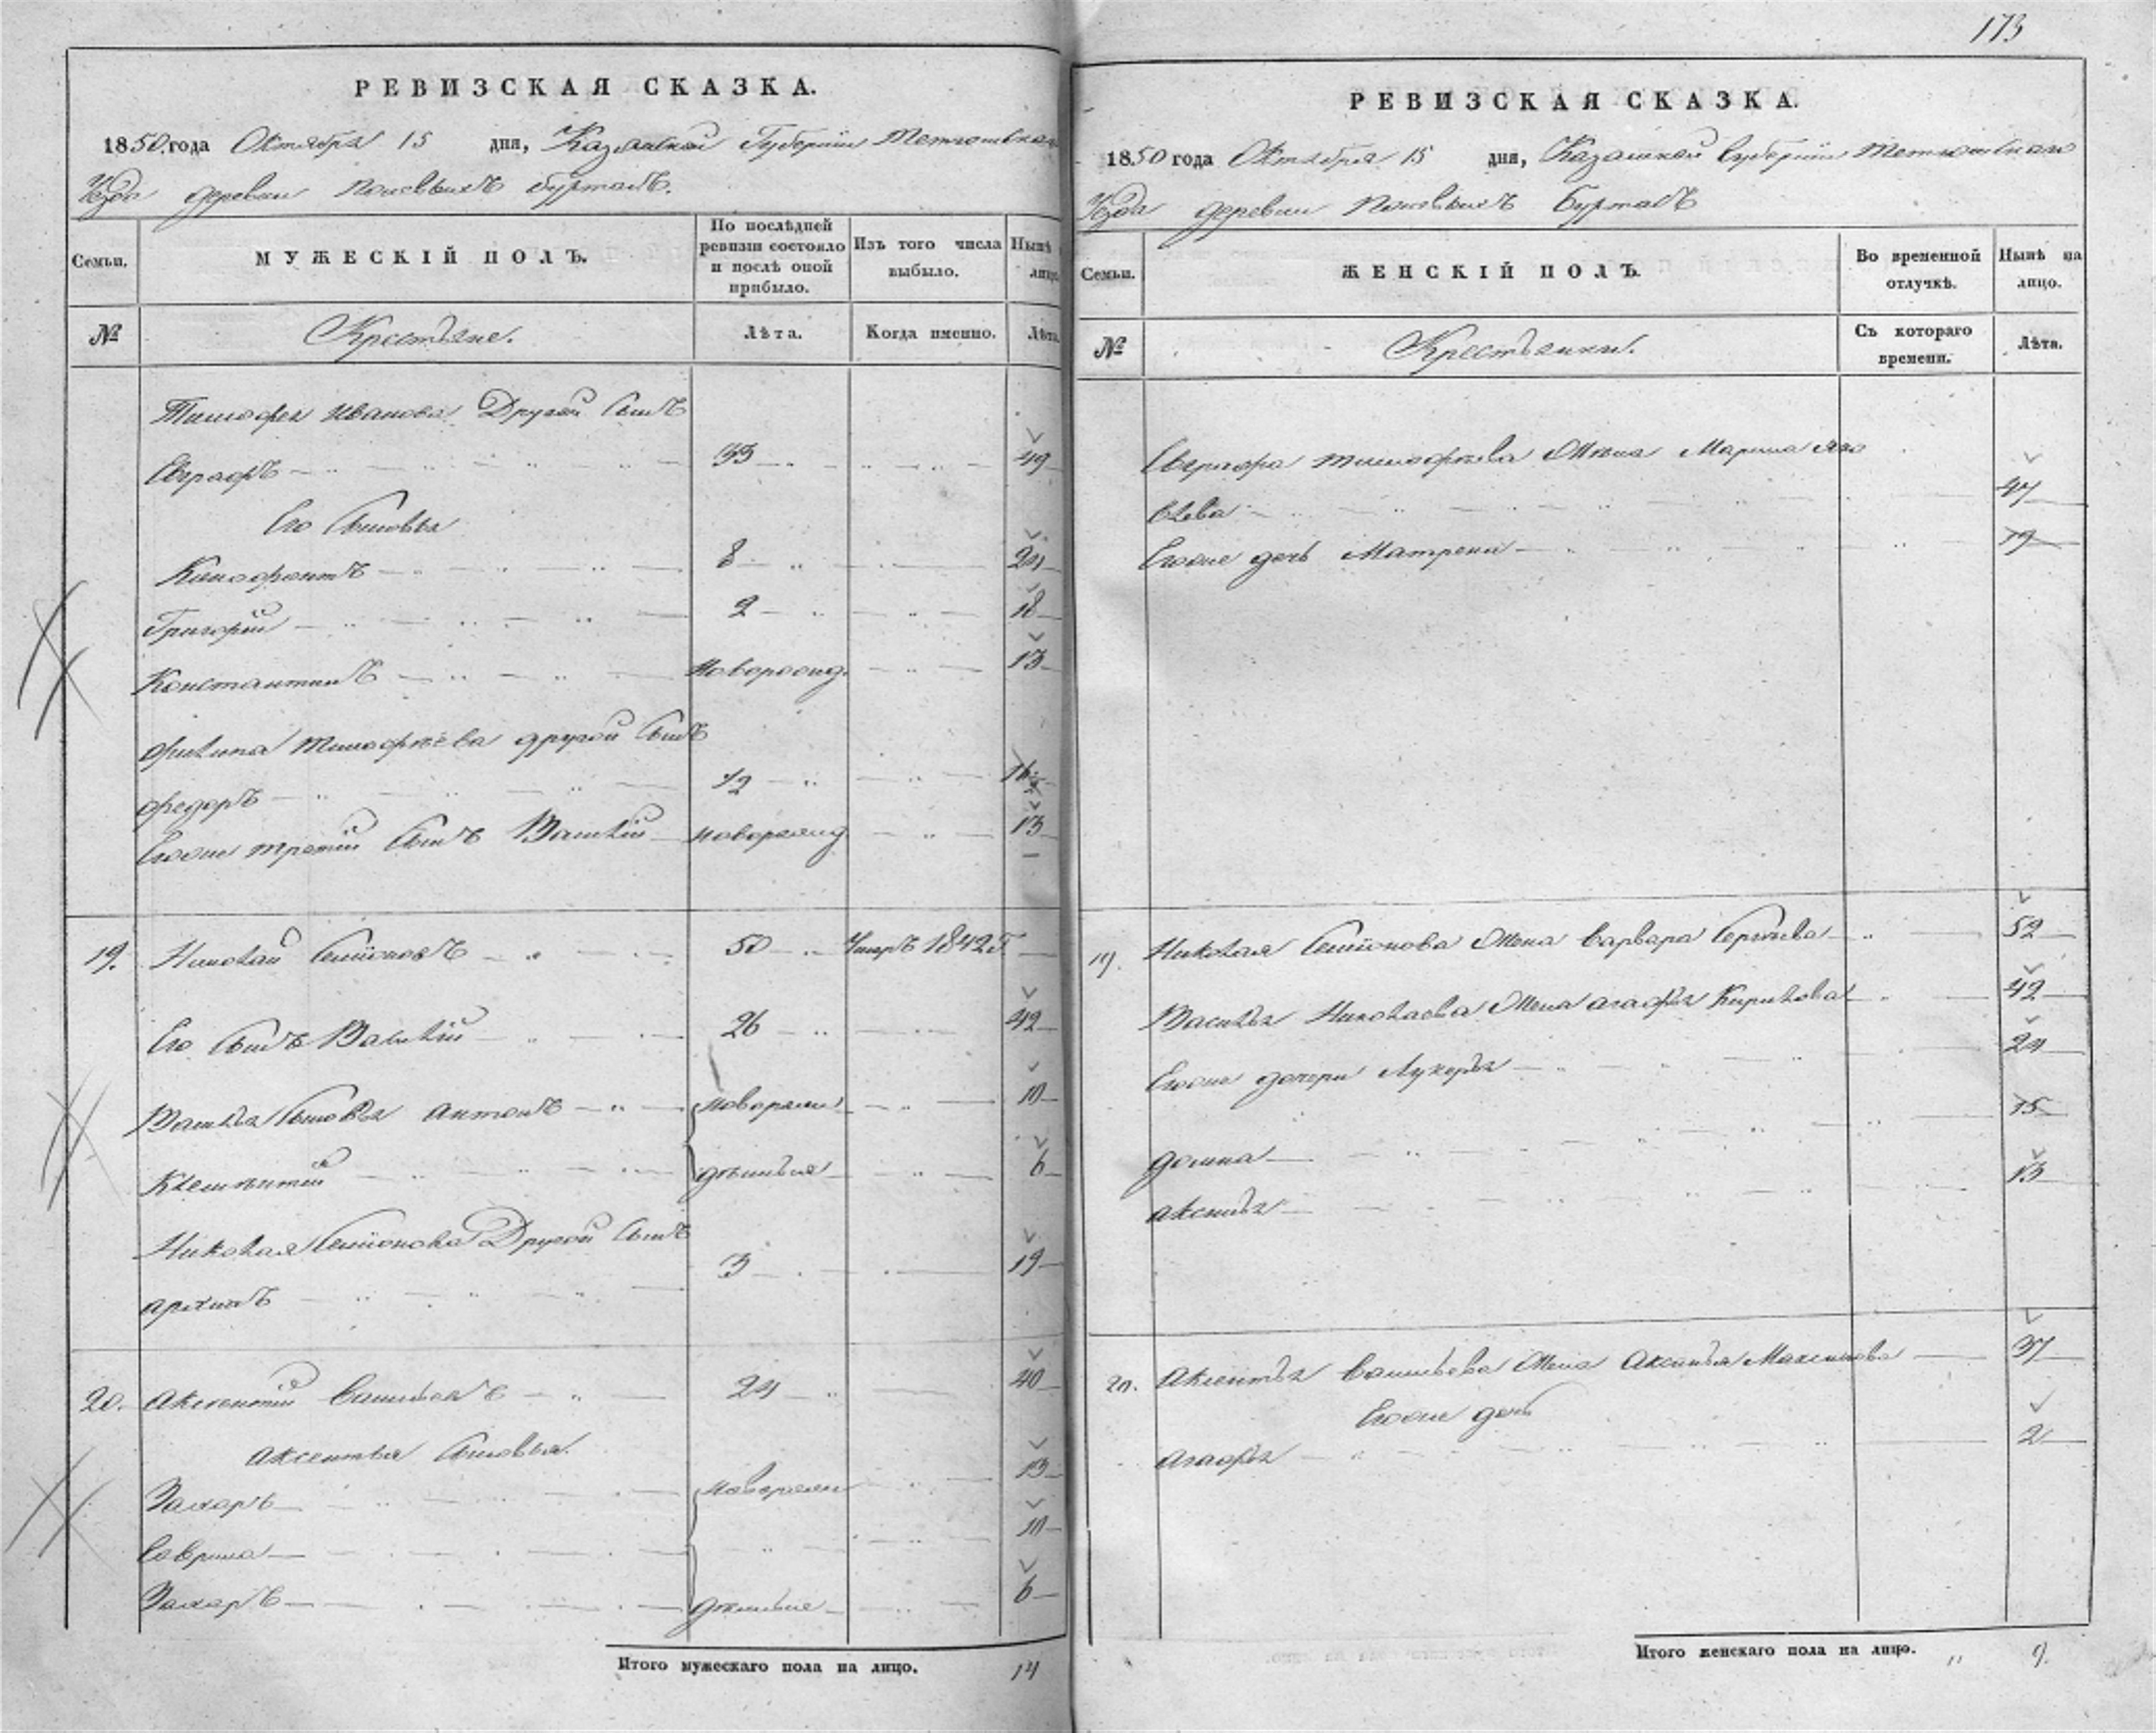 173
РЕВИЗСКАЯ СКАЗКА.
1850 года Октября 15 дня, Казанской Губернии Тетюшскаго
Уезда деревни Полевыхъ Буртасъ.
Семьи.
МУЖЕСКІЙ ПОЛЪ.
По послѣдней ревизіи состояло и послѣ оной прибыло.
Изъ того числа выбыло.
Нынѣ лицо
№
Крестьяне.
Лѣта.
Когда именно.
Лѣта.
Тимофея Иванова Другой Сынъ
Евграфъ 33 49
Его Сыновья
Ксенофонтъ 8 24
Григорий 2 18
Константинъ новорожд. 13
Филипа Тимофѣева другой Сынъ
Федоръ 12
Егоже третий Сынъ Василий новорожд 13
19. Николай Семионовъ 50 Умеръ 1842 Г.
Его Сынъ Василий 26 42
Василья Сыновья Антонъ новорожи 10
Клементий 6
Николая Семионова Другой Сынъ
Архипъ 3 19
20. Аксентий Васильевъ 24 40
Аксентья Сыновья.
Захаръ новорожи 13
Гаврила 10
Захаръ 6
Итого мужескаго пола на лицо. 14
РЕВИЗСКАЯ СКАЗКА.
1850 года Октября 15 дня, Казанской Губернии Тетюшскаго
Уезда деревни Полевыхъ Буртасъ
Семьи.
ЖЕНСКІЙ ПОЛЪ.
Во временной отлучкѣ.
Нынѣ на лицо.
№
Крестьянки.
Съ котораго времени.
Лѣта.
Евграфа Тимофѣева Жена Марина Яко
влева 47
Егоже дочь Матрена 19
19. Николая Семионова Жена Варвара Сергѣева 52
Василья Николаева Жена Агафья Кирилова 42
Егоже дочери Лукерья 24
Домна 15
Аксинья 13
20. Аксентья Васильева Жена Аксинья Максимова 37
Егоже дочь
Агафья 2
Итого женскаго пола на лицо. " 9.